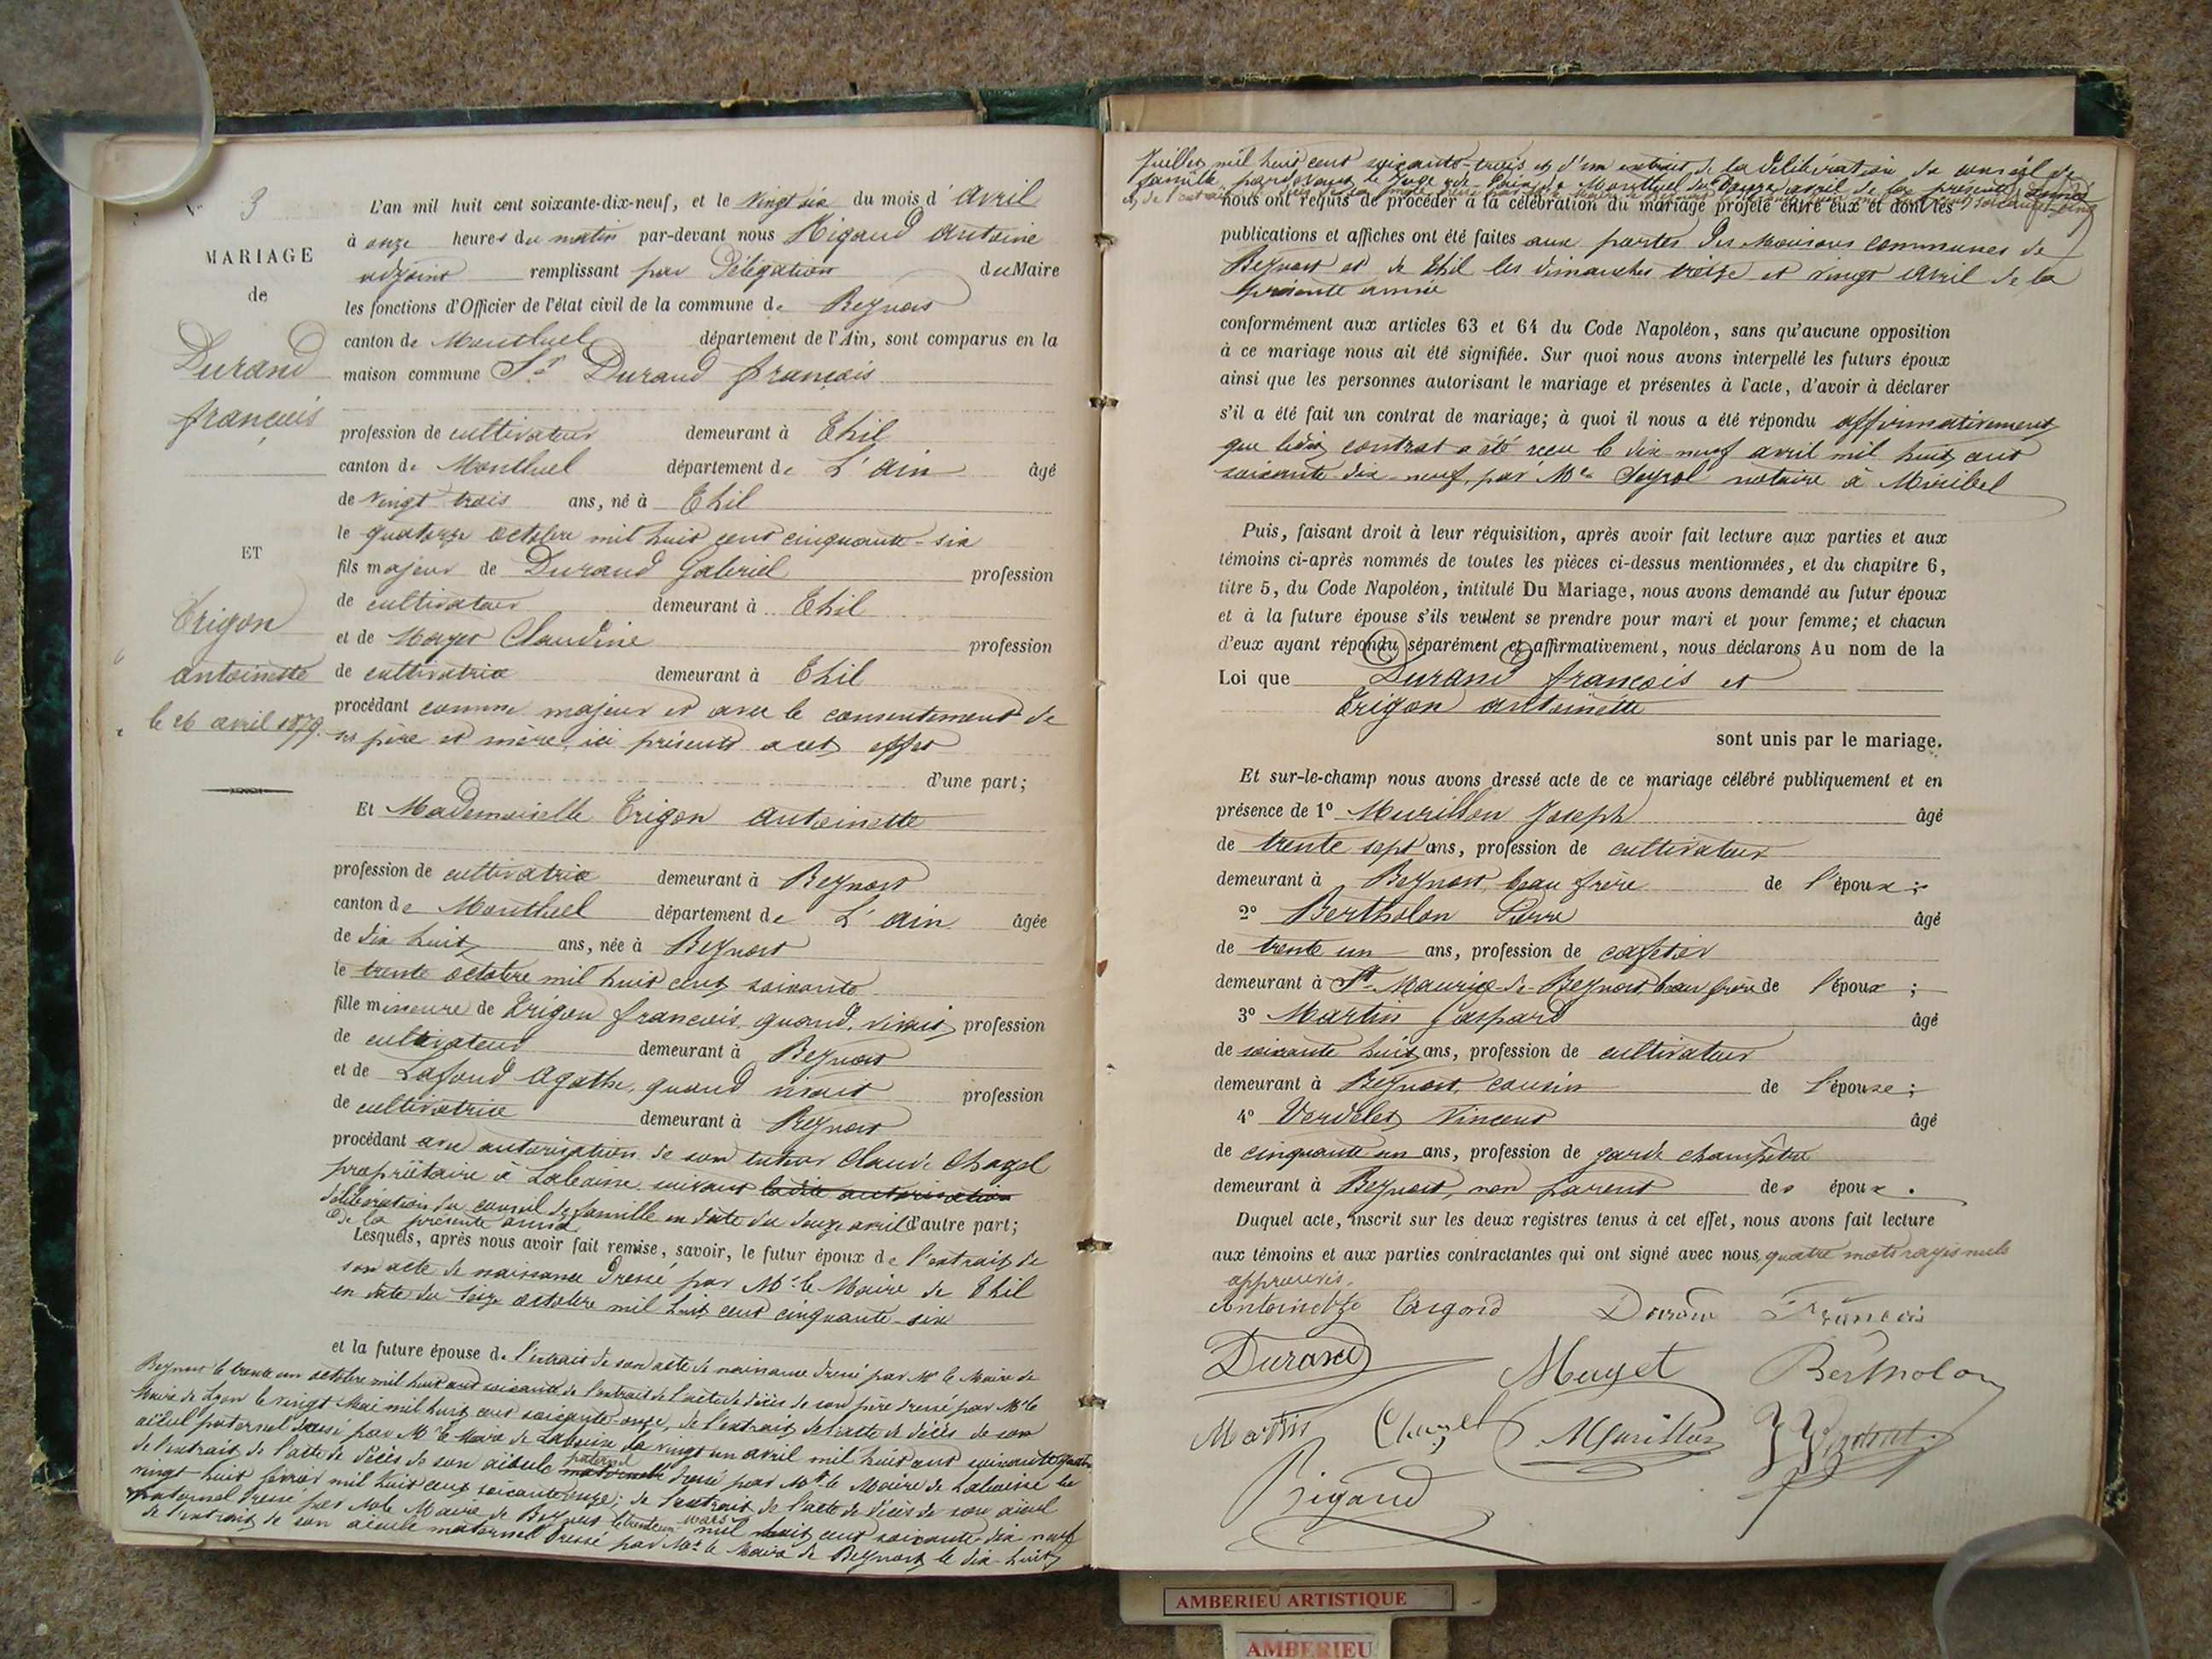 N° 3
MARIAGE
de
Durand
françois
ET
Trigon
antoinette
le 26 avril 1879.
L'an mil huit cent soixante-dix-neuf, et le Vingt six du mois d'avril
à onze heures du matin par-devant nous Rigaud antoine
adjoint remplissant par Délégation du Maire
les fonctions d'Officier de l'état civil de la commune de Beynost
canton de Montluel département de l'Ain, sont comparus en la
maison commune Sr Durand françois
profession de cultivateur demeurant à Thil
canton de Montluel département de L'ain âgé
de vingt trois ans, né à Thil
le quatorze octobre mil huit cent cinquante-six
fils majeur de Durand Gabriel profession
de cultivateur demeurant à Thil
et de Mayet Claudine profession
de cultivatrice demeurant à Thil
procédant comme majeur et avec le consentement de
ses père et mère, ici présents a cet effet
d'une part;
Et Mademoiselle Trigon antoinette
profession de cultivatrice demeurant à Beynost
canton de Montluel département de L'ain âgée
de dix huit ans, née à Beynost
le trente octobre mil huit cent soixante
fille mineure de Trigon françois, quand vivait profession
de cultivateur demeurant à Beynost
et de Lafond agathe, quand vivait profession
de cultivatrice demeurant à Beynost
procédant avec autorisation de son tuteur Claude Chazel
propriétaire à Laboisse suivant ladite autorisation
délibération du conseil de famille en date du douze avril d'autre part;
de la présente année
Lesquels, après nous avoir fait remise, savoir, le futur époux de l'extrait de
son acte de naissance dressé par Mr le Maire de Thil
en date du seize octobre mil huit cent cinquante-six
et la future épouse de l'extrait de son acte de naissance dressé par Mr le Maire de
Beynost le trente un octobre mil huit cent soixante de l'extrait de l'acte de décès de son père dressé par Mr le
Maire de Lyon le vingt Mai mil huit cent soixante-onze, de l'extrait de l'acte de décès de son
aïeul paternel dressé par Mr le Maire de Laboisse le vingt un avril mil huit cent soixante quatre
de l'extrait de l'acte de décès de son aïeule paternel maternelle dressé par Mr le Maire de Laboisse le
vingt huit février mil huit cent soixante onze; de l'extrait de l'acte de décès de son aïeul
maternel dressé par Mr le Maire de Beynost le trente un mars mil huit cent soixante-dix-neuf
de l'extrait de son aïeule maternel dressé par Mr le Maire de Beynost le dix-huit
Juillet mil huit cent soixante-trois et d'un extrait de la délibération du conseil de
famille pardevant le Juge de Paix de Montluel du douze avril de la présente année
nous ont requis de procéder à la célébration du mariage projeté entre eux et dont les
publications et affiches ont été faites aux portes des Maisons communes de
Beynost et de Thil les dimanches treize et vingt avril de la
présente année
conformément aux articles 63 et 64 du Code Napoléon, sans qu'aucune opposition
à ce mariage nous ait été signifiée. Sur quoi nous avons interpellé les futurs époux
ainsi que les personnes autorisant le mariage et présentes à l'acte, d'avoir à déclarer
s'il a été fait un contrat de mariage; à quoi il nous a été répondu affirmativement
que ledit contrat a été reçu le dix-neuf avril mil huit cent
soixante-dix-neuf, par Me Seyrol notaire à Miribel
Puis, faisant droit à leur réquisition, après avoir fait lecture aux parties et aux
témoins ci-après nommés de toutes les pièces ci-dessus mentionnées, et du chapitre 6,
titre 5, du Code Napoléon, intitulé Du Mariage, nous avons demandé au futur époux
et à la future épouse s'ils veulent se prendre pour mari et pour femme; et chacun
d'eux ayant répondu séparément et affirmativement, nous déclarons Au nom de la
Loi que Durand françois et
Trigon antoinette
sont unis par le mariage.
Et sur-le-champ nous avons dressé acte de ce mariage célébré publiquement et en
présence de 1° Murillon Joseph âgé
de trente sept ans, profession de cultivateur
demeurant à Beynost, beau frère de l'époux;
2° Bertholon Pierre âgé
de trente un ans, profession de cafetier
demeurant à St Maurice de Beynost, beau frère de l'époux;
3° Martin Gaspard âgé
de soixante huit ans, profession de cultivateur
demeurant à Beynost, cousin de l'épouse;
4° Verdelet Vincent âgé
de cinquante un ans, profession de garde champêtre
demeurant à Beynost, non parent des époux.
Duquel acte, inscrit sur les deux registres tenus à cet effet, nous avons fait lecture
aux témoins et aux parties contractantes qui ont signé avec nous, quatre mots rayés nuls
approuvés.
Antoinette Trigond Durand François
Durand Mayet Bertholon
Martin Chazel Murillon
Rigaud
AMBERIEU ARTISTIQUE
AMBERIEU